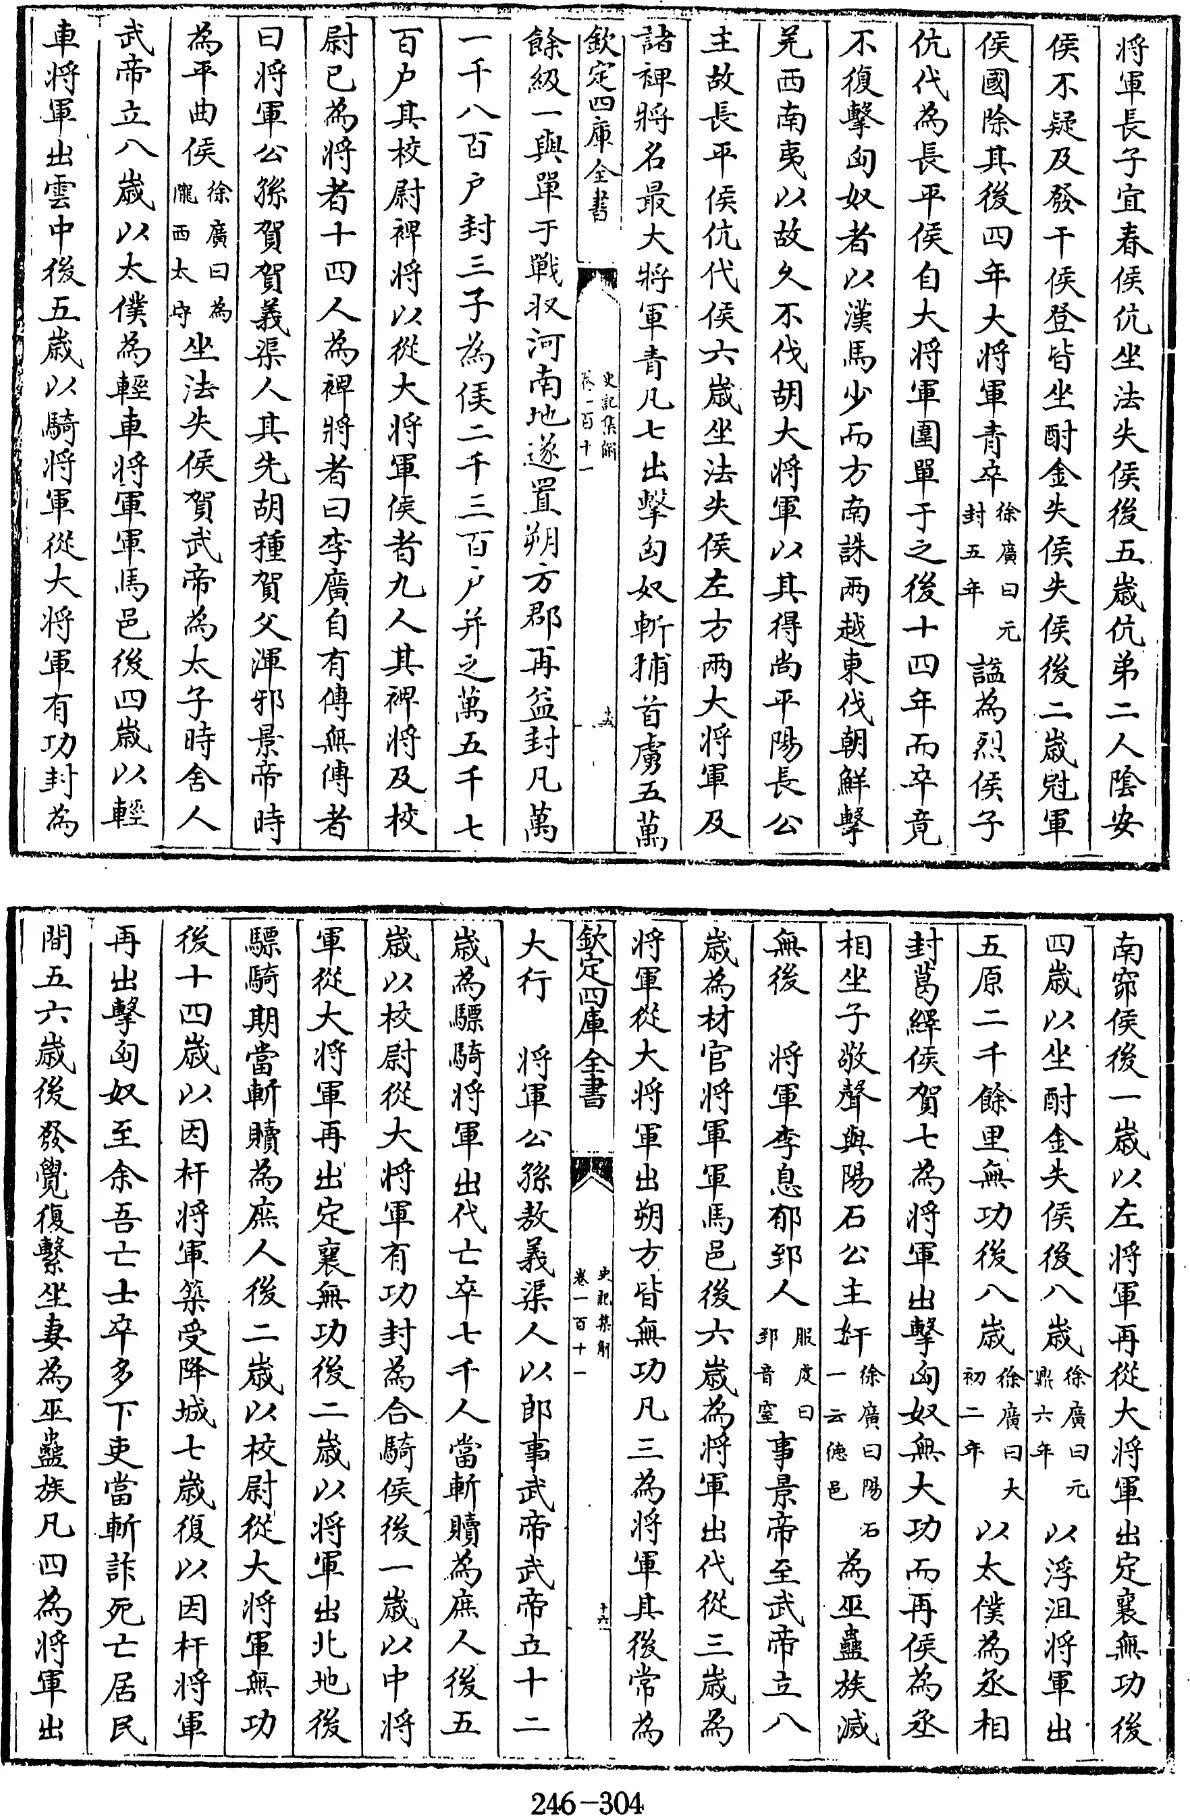 將軍長子宜春侯伉坐法失侯後五嵗伉弟二人隂安
侯不疑及發干侯登皆坐酎金失侯失侯後二嵗冠軍
侯國除其後四年大將軍青卒徐廣曰元封五年諡為烈侯子
伉代為長平侯自大將軍圍單于之後十四年而卒竟
不復擊匈奴者以漢馬少而方南誅兩越東伐朝鮮擊
羌西南夷以故久不伐胡大將軍以其得尚平陽長公
主故長平侯伉代侯六嵗坐法失侯左方兩大將軍及
諸裨將名最大將軍青凡七出擊匈奴斬捕首虜五萬
欽定四庫全書
史記集解
卷一百十一
十五
餘級一與單于戰収河南地遂置朔方郡再益封凡萬
一千八百户封三子為侯二千三百户并之萬五千七
百户其校尉裨將以從大將軍侯者九人其裨將及校
尉已為將者十四人為裨將者曰李廣自有傳無傳者
曰將軍公孫賀賀義渠人其先胡種賀父渾邪景帝時
為平曲侯徐廣曰為隴西太守坐法失侯賀武帝為太子時舍人
武帝立八嵗以太僕為輕車將軍軍馬邑後四嵗以輕
車將軍出雲中後五嵗以騎將軍從大將軍有功封為
南窌侯後一嵗以左將軍再從大將軍出定襄無功後
四嵗以坐酎金失侯後八嵗徐廣曰元鼎六年以浮沮將軍出
五原二千餘里無功後八嵗徐廣曰大初二年以太僕為丞相
封葛繹侯賀七為將軍出擊匈奴無大功而再侯為丞
相坐子敬聲與陽石公主奸徐廣曰陽石一云德邑為巫蠱族滅
無後　將軍李息郁郅人服䖍曰郅音窒事景帝至武帝立八
嵗為材官將軍軍馬邑後六嵗為將軍出代從三嵗為
將軍從大將軍出朔方皆無功凡三為將軍其後常為
欽定四庫全書
史記集解
卷一百十一
十六
大行　將軍公孫敖義渠人以郎事武帝武帝立十二
嵗為驃騎將軍出代亡卒七千人當斬贖為庶人後五
嵗以校尉從大將軍有功封為合騎侯後一嵗以中將
軍從大將軍再出定襄無功後二嵗以將軍出北地後
驃騎期當斬贖為庶人後二嵗以校尉從大將軍無功
後十四嵗以因杅將軍築受降城七嵗復以因杅將軍
再出擊匈奴至余吾亡士卒多下吏當斬詐死亡居民
間五六嵗後發覺復繫坐妻為巫蠱族凡四為將軍出
246-304